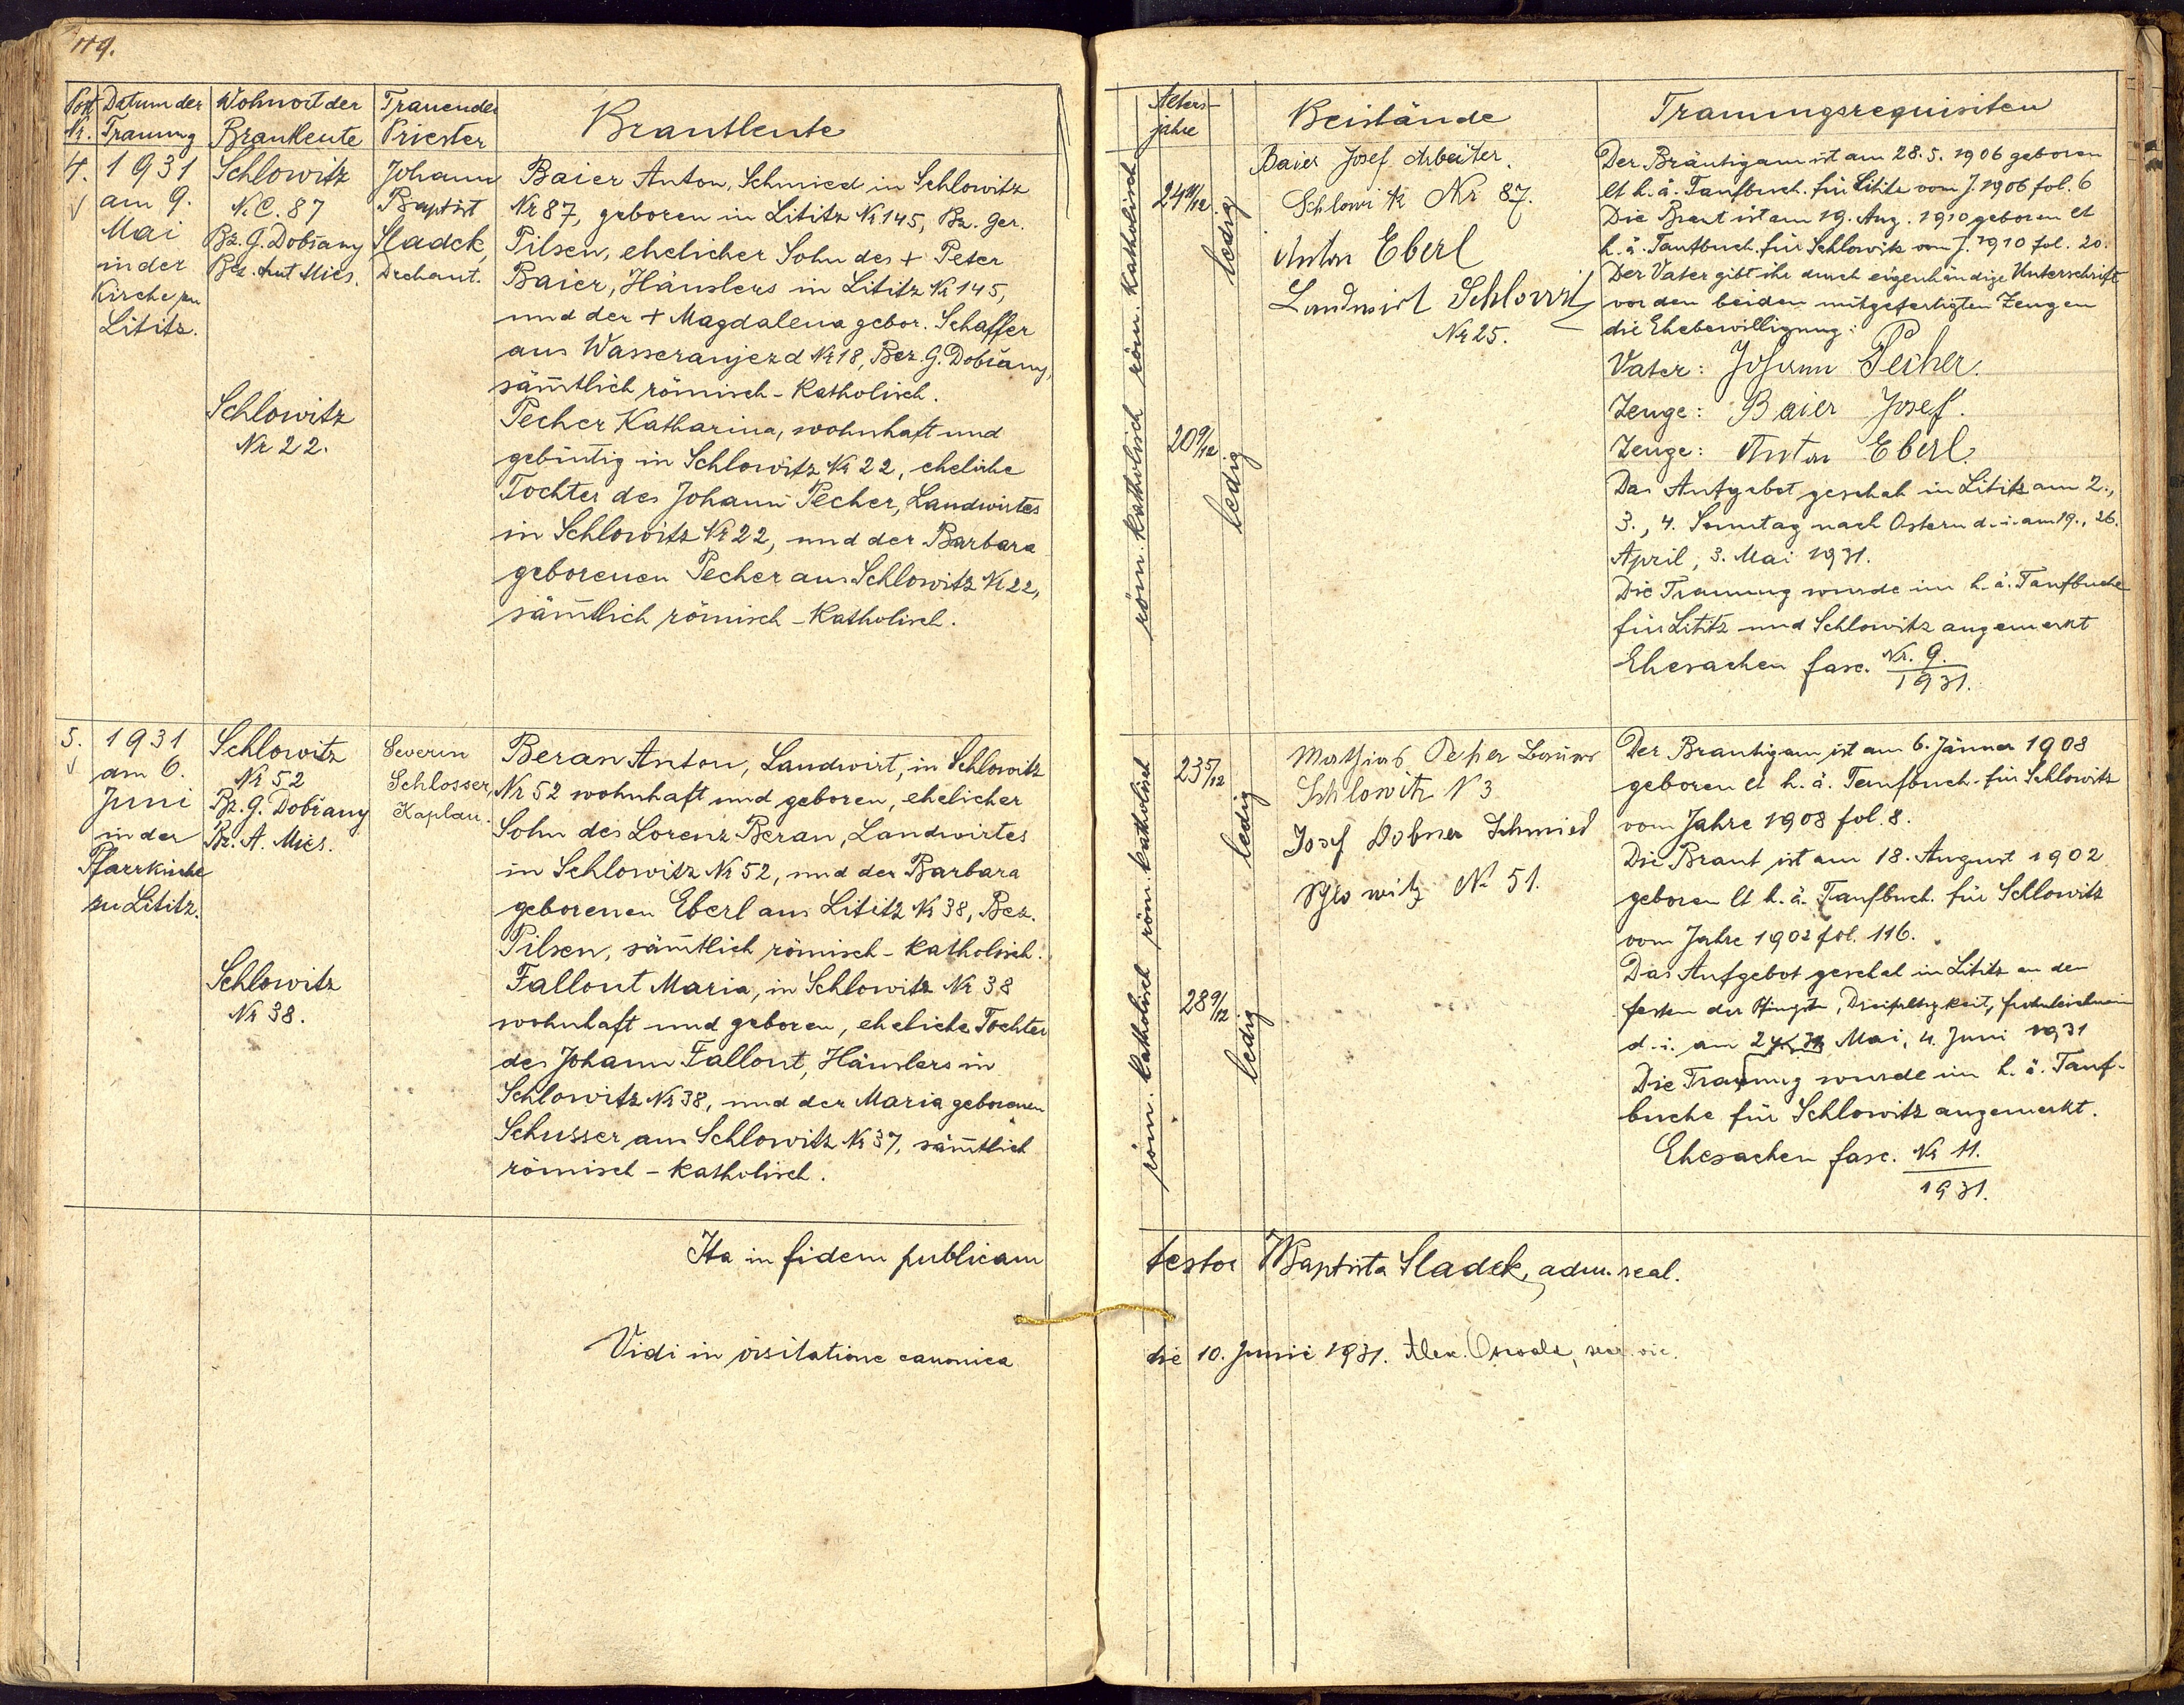 119.
Post Nr.
Datum der Trauung
Wohnort der Brautleute
Trauender Priester
Brautleute
4.
1931
am 9.
Mai
in der
Kirche zu
Lititz.
Schlowitz
N.C. 87
Bz. G. Dobřany
Bez. Amt Mies.
Schlowitz
Nr 22.
Johann
Baptist
Sladek,
Dechant.
Baier Anton, Schmied in Schlowitz
Nr 87, geboren in Lititz Nr 145, Bz. Ger.
Pilsen, ehelicher Sohn des + Peter
Baier, Häuslers in Lititz Nr 145,
und der + Magdalena gebor. Schaffer
aus Wasseraujezd Nr 18, Bez. G. Dobřany,
säm̄tlich römisch-katholisch.
Pecher Katharina, wohnhaft und
gebürtig in Schlowitz Nr 22, eheliche
Tochter des Johann Pecher, Landwirtes
in Schlowitz Nr 22, und der Barbara
geborenen Pecher aus Schlowitz Nr 22,
säm̄tlich römisch-katholisch.
5.
1931
am 6.
Juni
in der
Pfarrkirche
zu Lititz.
Schlowitz
Nr 52
Bz. G. Dobřany
Bz. A. Mies.
Schlowitz
Nr 38.
Severin
Schlosser,
Kaplan.
Beran Anton, Landwirt, in Schlowitz
Nr 52 wohnhaft und geboren, ehelicher
Sohn des Lorenz Beran, Landwirtes
in Schlowitz Nr 52, und der Barbara
geborenen Eberl aus Lititz Nr 38, Bez.
Pilsen, säm̄tlich römisch-katholisch.
Fallout Maria, in Schlowitz Nr 38
wohnhaft und geboren, eheliche Tochter
des Johann Fallout, Häuslers in
Schlowitz Nr 38, und der Maria geborenen
Schusser aus Schlowitz Nr 37, säm̄tlich
römisch-katholisch.
Ita in fidem publicam
Vidi in visitatione canonica
Altersjahre
Beistände
Trauungsrequisiten
röm. katholisch
röm. katholisch
24 11/12
ledig
20 9/12
ledig
Baier Josef Arbeiter.
Schlowitz Nr 87.
Anton Eberl
Landwirt Schlowitz
Nr 25.
Der Bräutigam ist am 28. 5. 1906 geboren
lt h. ä. Taufbuch. für Lititz vom J. 1906 fol. 6
Die Braut ist am 19. Aug. 1910 geboren lt
h. ä. Taufbuch für Schlowitz vom J. 1910 fol. 20.
Der Vater gibt ihr durch eigenhändige Unterschrift
vor den beiden mitgefertigten Zeugen
die Ehebewilligung:
Vater: Johann Pecher.
Zeuge: Baier Josef.
Zeuge: Anton Eberl.
Das Aufgebot geschah in Lititz am 2.,
3., 4. Sonntag nach Ostern d. i. am 19., 26.
April, 3. Mai 1931.
Die Trauung wurde im h. ä. Taufbuche
für Lititz und Schlowitz angemerkt
Ehesachen fasc. Nr. 9.
1931.
röm. katholisch
röm. katholisch
23 5/12
ledig
28 9/12
ledig
Mathias Peher Bauer
Schlowitz N 3
Josef Dobner Schmied
Schlowitz No 51.
Der Bräutigam ist am 6. Jänner 1908
geboren lt h. ä. Taufbuch für Schlowitz
vom Jahre 1908 fol. 8.
Die Braut ist am 18. August 1902
geboren lt h. ä. Taufbuch. für Schlowitz
vom Jahre 1902 fol. 116.
Das Aufgebot geschah in Lititz an den
festen der Pfingsten, Dreifaltigkeit, frohnleichnam
d. i. am Mai, 4. Juni 1931
Die Trauung wurde im h. ä. Tauf-
buche für Schlowitz angemerkt.
Ehesachen fasc. Nr 11.
1931.
testor Baptista Sladek, adm. real.
die 10. Junii 1931. Alex. Oswald,